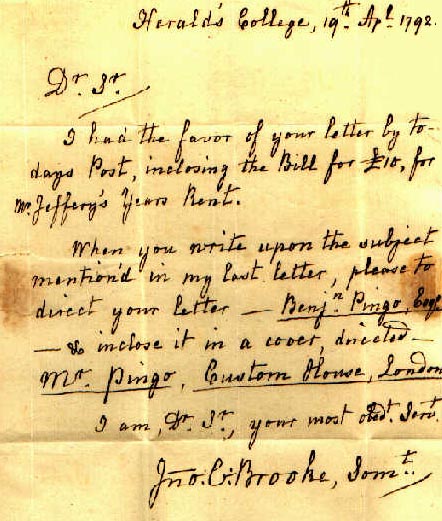 Herald's College, 19th. Apl. 1792.
Dr. Sr.
I had the favor of your letter by to-
days Post, inclosing the Bill for £10, for
Mr. Jeffery's Years Rent.
When you write upon the subject
mention'd in my last letter, please to
direct your letter — Benjn. Pingo, Esqr
— & inclose it in a cover, directed —
Mr. Pingo, Custom House, London
I am, Dr. Sr., your most obedt. Servt.
Jno. C. Brooke, Somt.